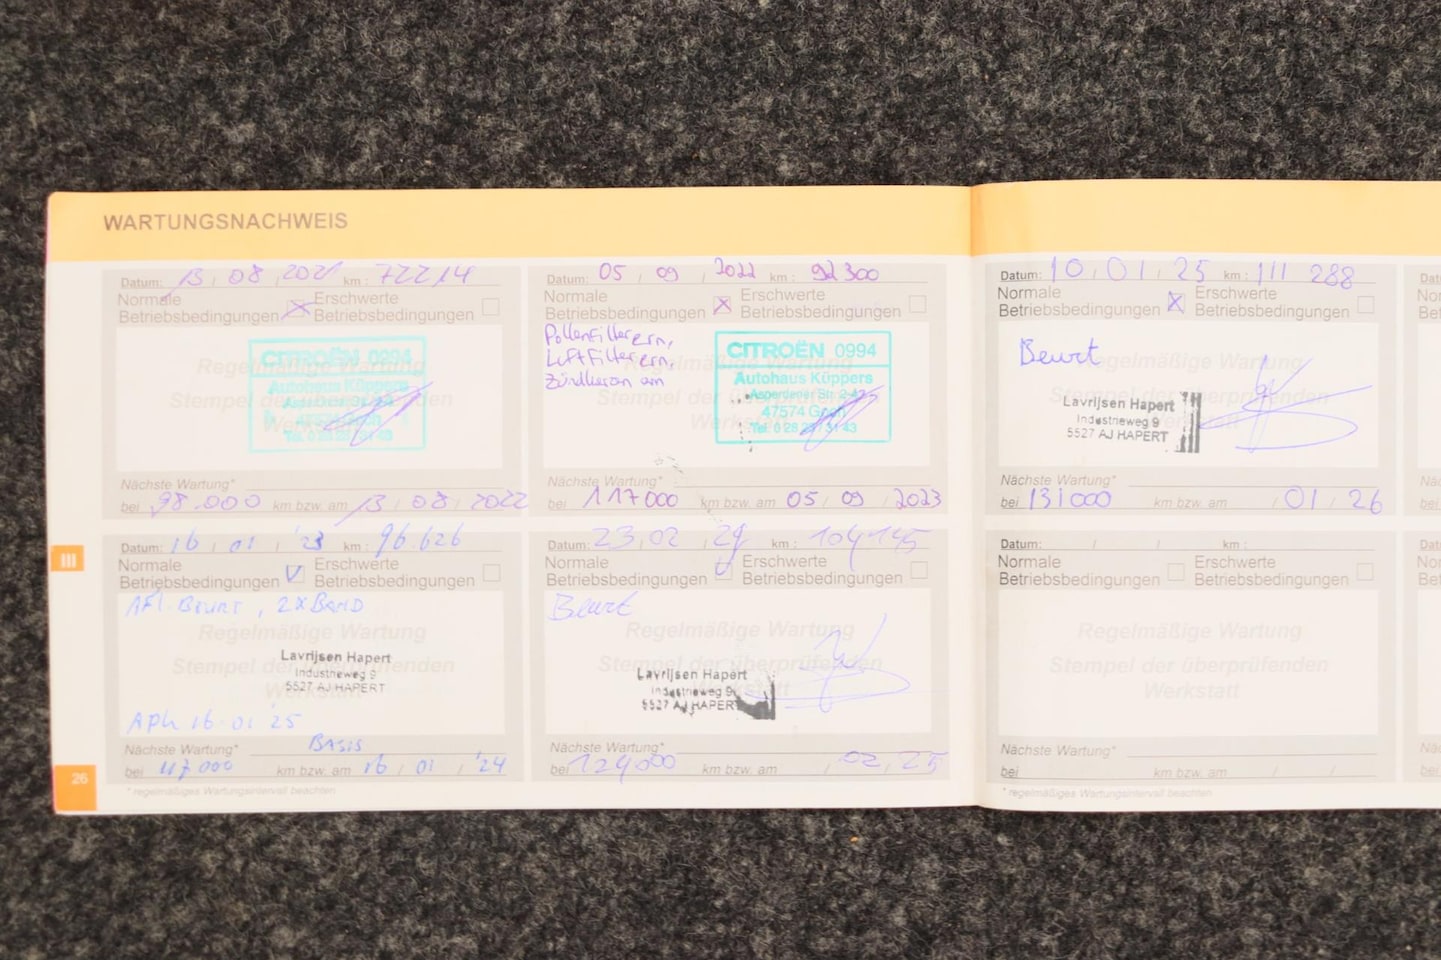 WARTUNGSNACHWEIS
Datum: 13 / 08 / 2021 km: 72214
Normale
Betriebsbedingungen
Erschwerte
Betriebsbedingungen
Regelmäßige Wartung
Stempel der überprüfenden
Werkstatt
CITROËN 0994
Autohaus Küppers
Nächste Wartung*
bei 98.000 km bzw. am 13 / 08 / 2022
Datum: 05 / 09 / 2022 km: 92 300
Normale
Betriebsbedingungen
Erschwerte
Betriebsbedingungen
Pollenfilter ern,
Luftfilter ern,
Zündkerzen
CITROËN 0994
Autohaus Küppers
Asperdener Str. 2-42
47574 Goch
Nächste Wartung*
bei 117000 km bzw. am 05 / 09 / 2023
Datum: 10 / 01 / 25 km: 111 288
Normale
Betriebsbedingungen
Erschwerte
Betriebsbedingungen
Beurt
Regelmäßige Wartung
Stempel der überprüfenden
Werkstatt
Lavrijsen Hapert
Industrieweg 9
5527 AJ HAPERT
Nächste Wartung*
bei 131000 km bzw. am / 01 / 26
III
Datum: 16 / 01 / '23 km: 96.626
Normale
Betriebsbedingungen
Erschwerte
Betriebsbedingungen
Afl. Beurt, 2x Band
Regelmäßige Wartung
Stempel der überprüfenden
Werkstatt
Lavrijsen Hapert
Industrieweg 9
5527 AJ HAPERT
Apk 16 01 '25
Nächste Wartung* Basis
bei 117000 km bzw. am 16 / 01 / '24
* regelmäßiges Wartungsintervall beachten
Datum: 23 / 02 / 24 km: 104145
Normale
Betriebsbedingungen
Erschwerte
Betriebsbedingungen
Beurt
Regelmäßige Wartung
Stempel der überprüfenden
Werkstatt
Lavrijsen Hapert
Industrieweg 9
5527 AJ HAPERT
Nächste Wartung*
bei 124000 km bzw. am 02 / 25
Datum: / / km:
Normale
Betriebsbedingungen
Erschwerte
Betriebsbedingungen
Regelmäßige Wartung
Stempel der überprüfenden
Werkstatt
Nächste Wartung*
bei km bzw. am / /
* regelmäßiges Wartungsintervall beachten
26